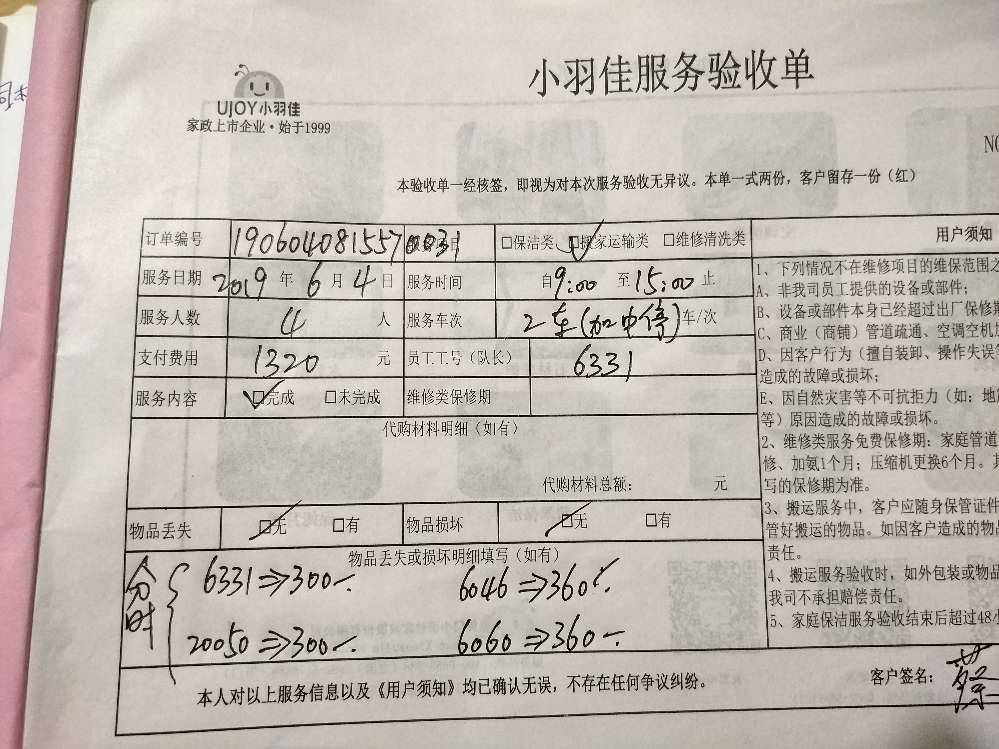 小羽佳服务验收单
UJOY小羽佳
家政上市企业·始于1999
NO
本验收单一经核签，即视为对本次服务验收无异议。本单一式两份，客户留存一份（红）
订单编号 1906040815570031 □保洁类 ☑搬家运输类 □维修清洗类
服务日期 2019 年 6 月 4 日 服务时间 自9:00 至15:00 止
服务人数 4 人 服务车次 2车(加中停)车/次
支付费用 1320 元 员工工号（队长） 6331
服务内容 ☑完成 □未完成 维修类保修期
代购材料明细（如有）
代购材料总额： 元
物品丢失 ☑无 □有 物品损坏 ☑无 □有
物品丢失或损坏明细填写（如有）
6331⇒300 6046⇒360
20050⇒300 6060⇒360
本人对以上服务信息以及《用户须知》均已确认无误，不存在任何争议纠纷。
客户签名：
用户须知
1、下列情况不在维修项目的维保范围之
A、非我司员工提供的设备或部件；
B、设备或部件本身已经超过出厂保修期
C、商业（商铺）管道疏通、空调空机
D、因客户行为（擅自装卸、操作失误
造成的故障或损坏；
E、因自然灾害等不可抗拒力（如：地
等）原因造成的故障或损坏。
2、维修类服务免费保修期：家庭管道
修、加氨1个月；压缩机更换6个月。其
写的保修期为准。
3、搬运服务中，客户应随身保管证件
管好搬运的物品。如因客户造成的物品
责任。
4、搬运服务验收时，如外包装或物品
我司不承担赔偿责任。
5、家庭保洁服务验收结束后超过48小